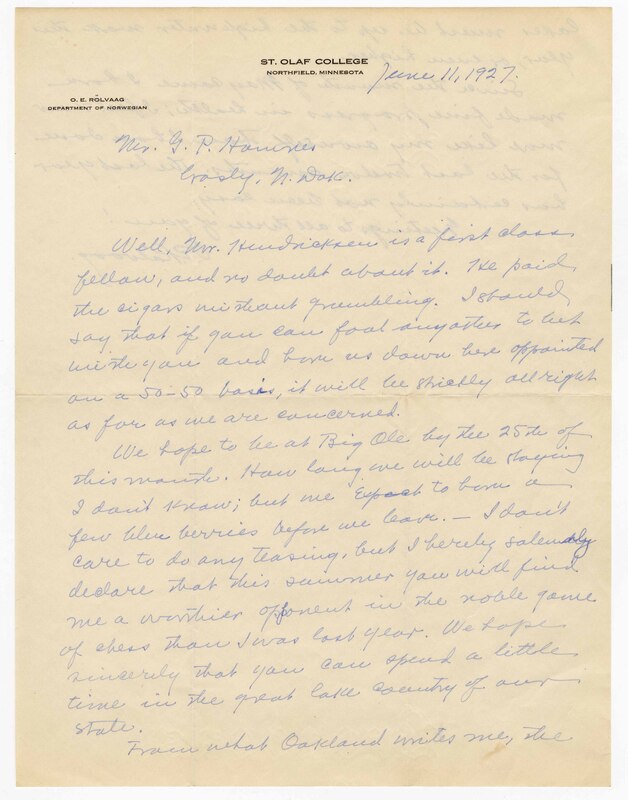 ST. OLAF COLLEGE
NORTHFIELD, MINNESOTA
June 11, 1927.
O. E. RÖLVAAG
DEPARTMENT OF NORWEGIAN
Mr. G. P. Homnes
Crosby, N. Dak.
Well, Mr. Hendricksen is a first class
fellow, and no doubt about it. He paid
the cigars without grumbling. I should
say that if you can fool any other to bet
with you and have us down here appointed
on a 50-50 basis, it will be strictly all right
as far as we are concerned.
We hope to be at Big Ole by the 25th of
this month. How long we will be staying
I don't know; but we expect to have a
few blue berries before we leave. — I don't
care to do any teasing, but I hereby solemnly
declare that this summer you will find
me a worthier opponent in the noble game
of chess than I was last year. We hope
sincerely that you can spend a little
time in the great lake country of our
state.
From what Oakland writes me, the